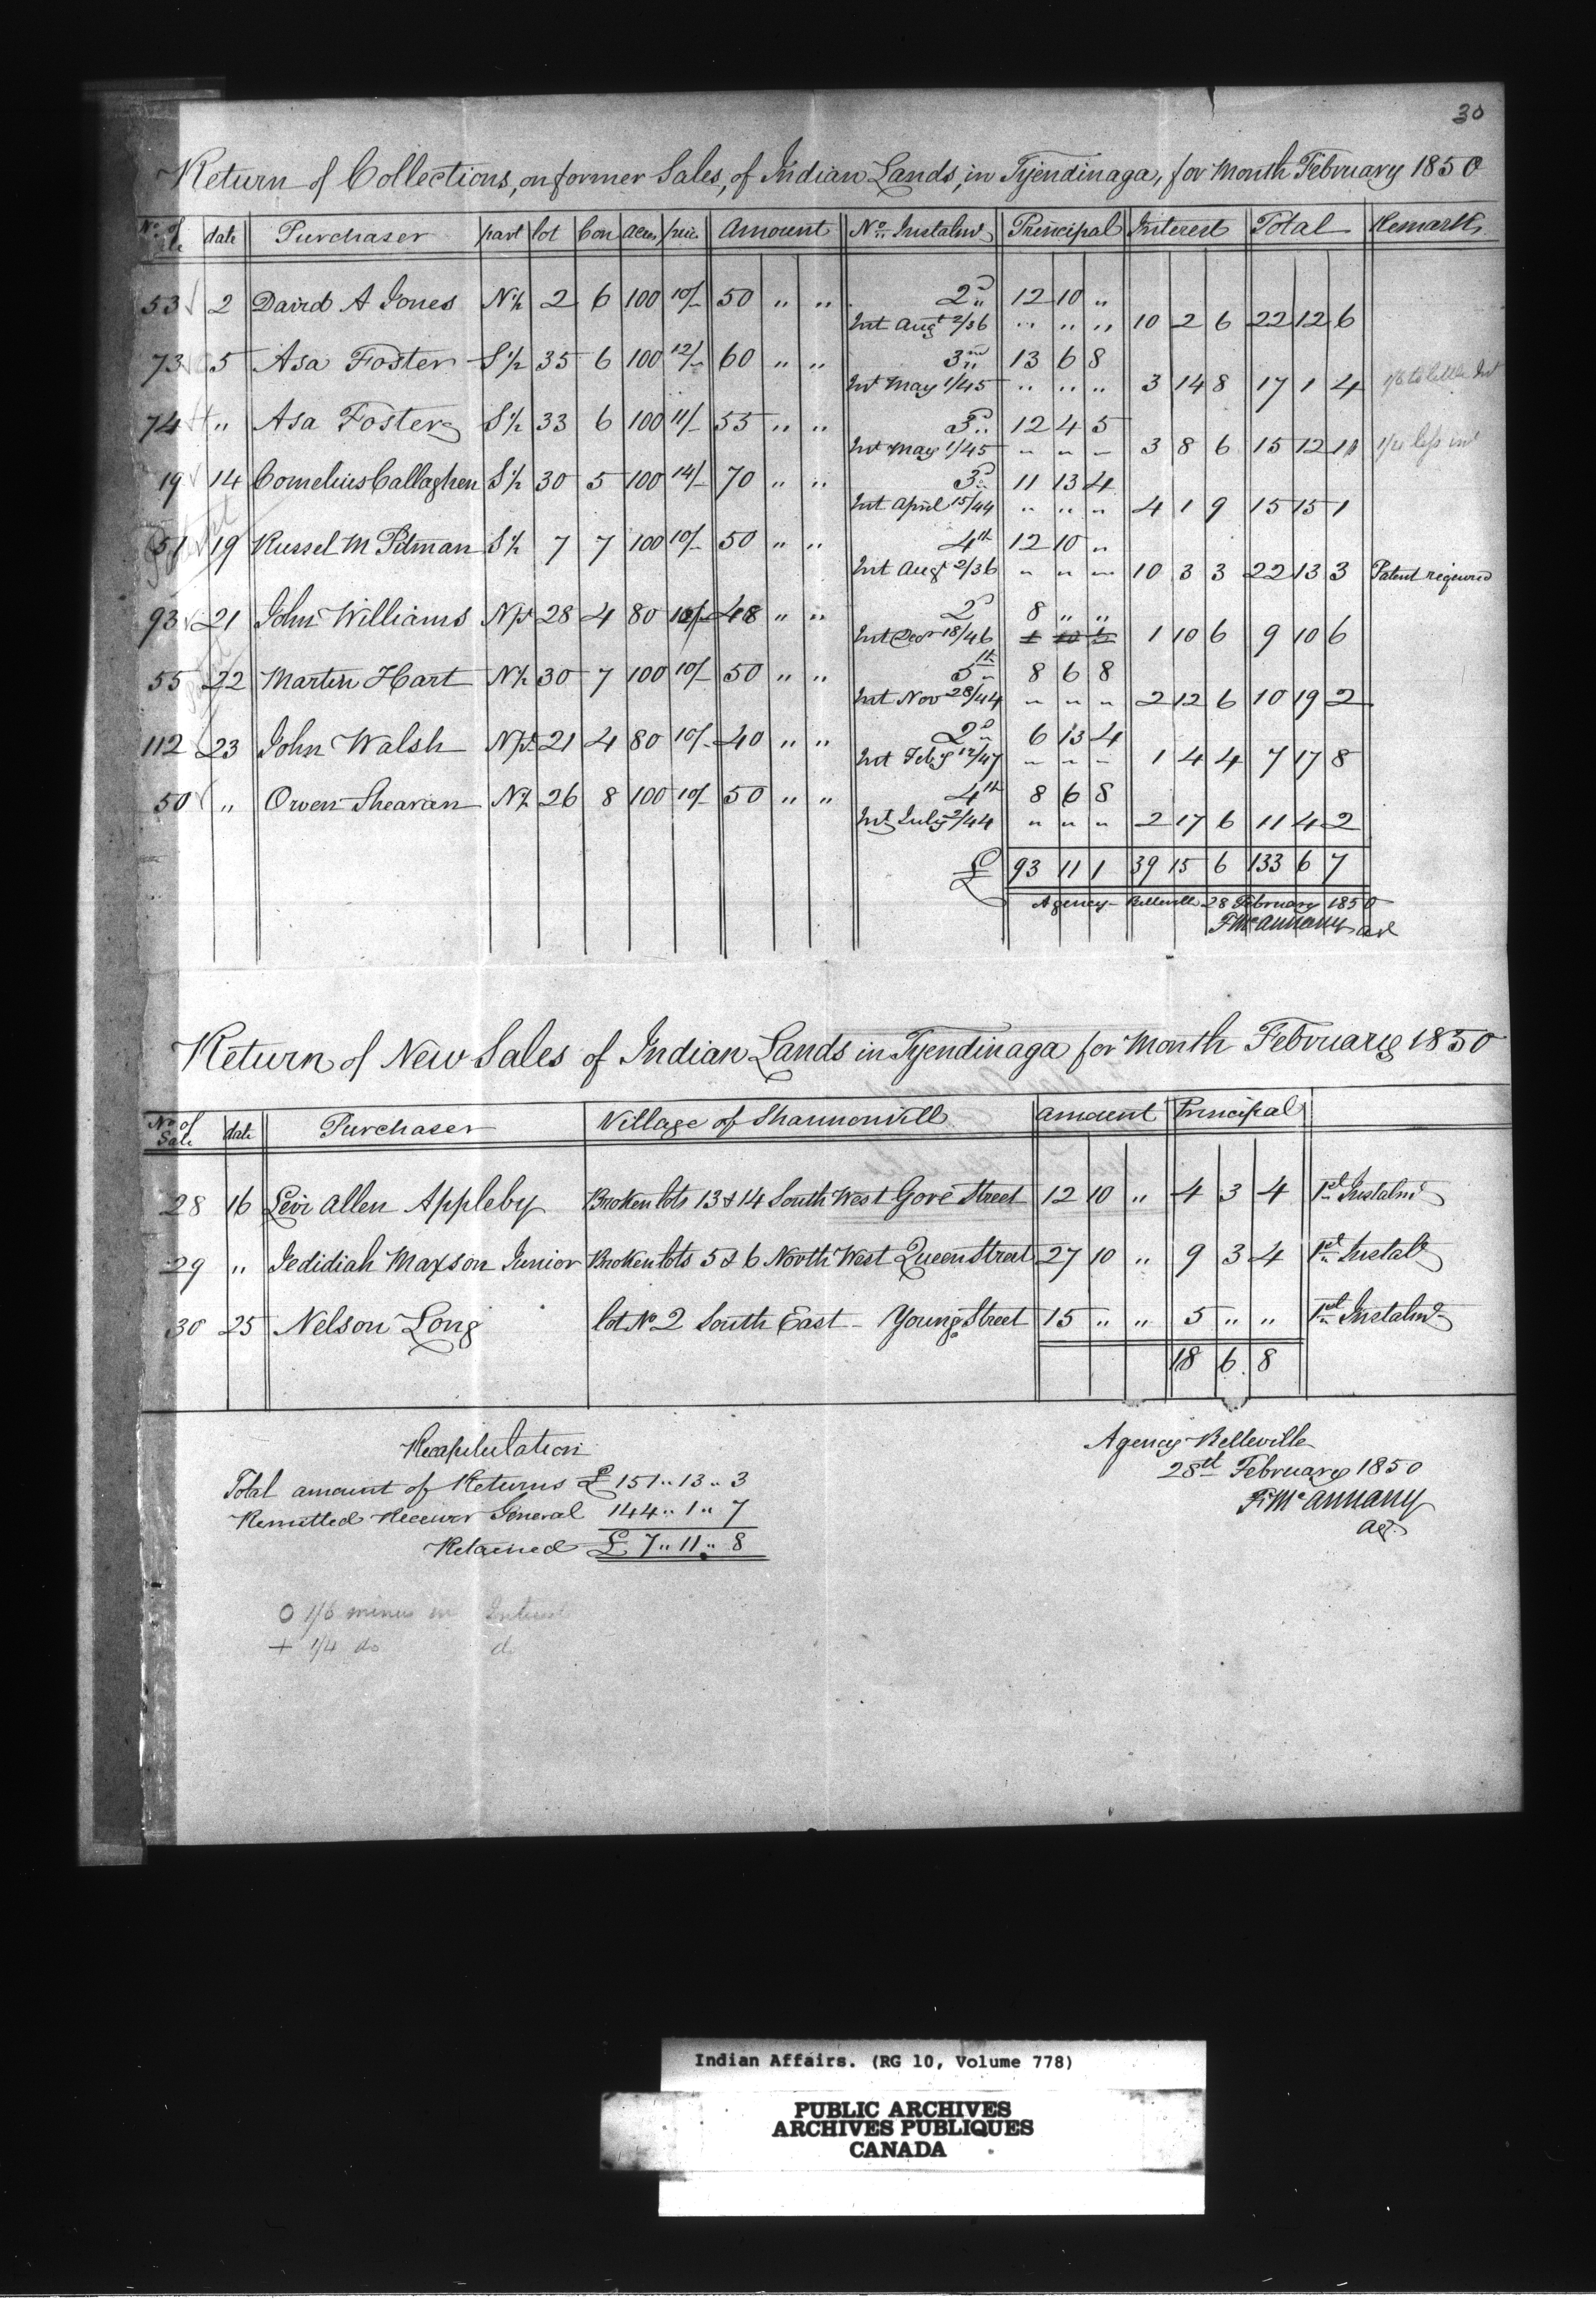 30
Return of Collections, on former Sales, of Indian Lands, in Tyendinaga, for Month February 1850
No. of Sale date Purchaser part lot Con Acres price Amount No. Instalmt Principal Interest Total Remarks
53 2 David A Jones N½ 2 6 100 10/- 50 " " 2d 12 10 "
Int Augt 2/36 " " " 10 2 6 22 12 6
73 5 Asa Foster S½ 35 6 100 12/- 60 " " 3rd 13 6 8
Int May 1/45 " " " 3 14 8 17 1 4 1/6 to little Int
74 " Asa Foster S½ 33 6 100 11/- 55 " " 3d 12 4 5
Int May 1/45 " " " 3 8 6 15 12 11 1/4 less int
19 14 Cornelius Callaghen S½ 30 5 100 14/- 70 " " 3d 11 13 4
Int April 15/44 " " " 4 1 9 15 15 1
51 19 Russel M Pitman S½ 7 7 100 10/- 50 " " 4th 12 10 "
Int Augt 2/36 " " " 10 3 3 22 13 3 Patent riquired
93 21 John Williams Npt 28 4 80 12/- 48 " " 2d 8 " "
Int Decr 18/46 1 10 6 1 10 6 9 10 6
55 22 Martin Hart N½ 30 7 100 10/- 50 " " 5th 8 6 8
Int Nov 28/44 " " " 2 12 6 10 19 2
112 23 John Walsh Npt 21 4 80 10/- 40 " " 2d 6 13 4
Int Feby 12/47 " " " 1 4 4 7 17 8
50 " Owen Shearian N½ 26 8 100 10/- 50 " " 4th 8 6 8
Int July 2/44 " " " 2 17 6 11 4 2
£ 93 11 1 39 15 6 133 6 7
Agency Belleville 28 February 1850
F McAnnany agt
Return of New Sales of Indian Lands in Tyendinaga for Month February 1850
No of Sale date Purchaser Village of Shannonvill amount Principal
28 16 Levi Allen Appleby Broken lots 13 & 14 South West Gore Street 12 10 " 4 3 4 1st Instalmt
29 " Jedidiah Maxson Junior Broken lots 5 & 6 North West Queen Street 27 10 " 9 3 4 1st Instalt
30 25 Nelson Long lot No 2 South East - Young Street 15 " " 5 " " 1st Instalmt
18 6 8
Recapitulation
Total amount of Returns £ 151 " 13 " 3
Remitted Receiver General 144 " 1 " 7
Retained £ 7 " 11 " 8
Agency Belleville
28th February 1850
F. McAnnany
agt
O 1/6 minus in Interest
+ 1/4 do do
Indian Affairs. (RG 10, Volume 778)
PUBLIC ARCHIVES
ARCHIVES PUBLIQUES
CANADA